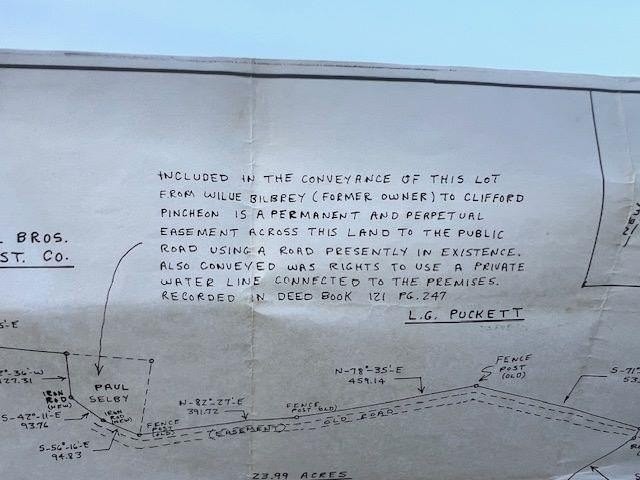 INCLUDED IN THE CONVEYANCE OF THIS LOT
FROM WILLIE BILBREY (FORMER OWNER) TO CLIFFORD
PINCHEON IS A PERMANENT AND PERPETUAL
EASEMENT ACROSS THIS LAND TO THE PUBLIC
ROAD USING A ROAD PRESENTLY IN EXISTENCE.
ALSO CONVEYED WAS RIGHTS TO USE A PRIVATE
WATER LINE CONNECTED TO THE PREMISES.
RECORDED IN DEED BOOK 121 PG. 247
L.G. PUCKETT
BROS.
ST. CO.
NEW
PAUL
SELBY
IRON
ROD
(NEW)
IRON
ROD
(NEW)
27.31
S-42°-11'-E
93.76
S-56°-16'-E
94.83
FENCE
POST
(OLD)
N-82°-27'-E
391.72
(EASEMENT)
FENCE
POST (OLD)
OLD ROAD
N-78°-35'-E
459.14
FENCE
POST
(OLD)
S-71°
53.
23.99 ACRES